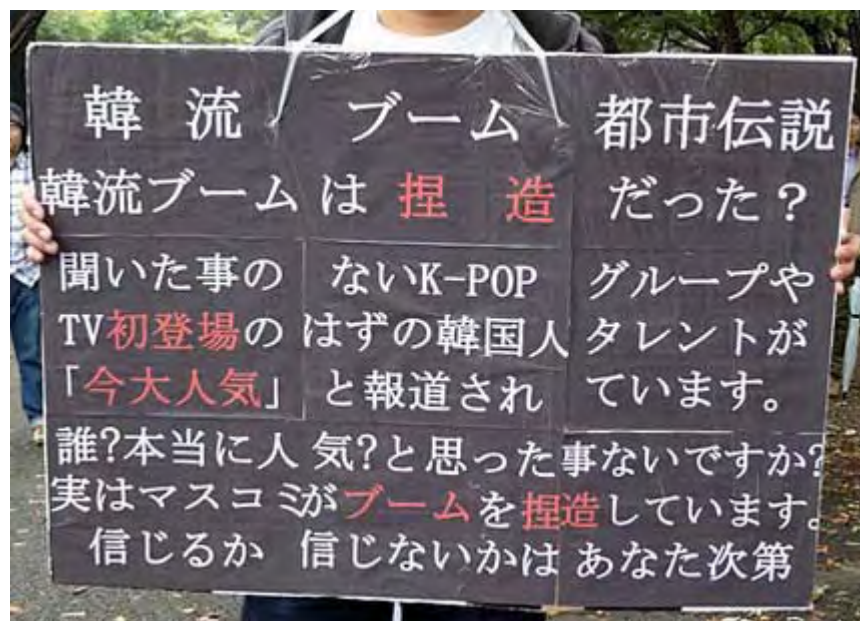 韓流ブーム都市伝説
韓流ブームは捏造だった？
聞いた事のないK-POPグループや
TV初登場のはずの韓国人タレントが
「今大人気」と報道されています。
誰?本当に人気?と思った事ないですか?
実はマスコミがブームを捏造しています。
信じるか 信じないかは あなた次第